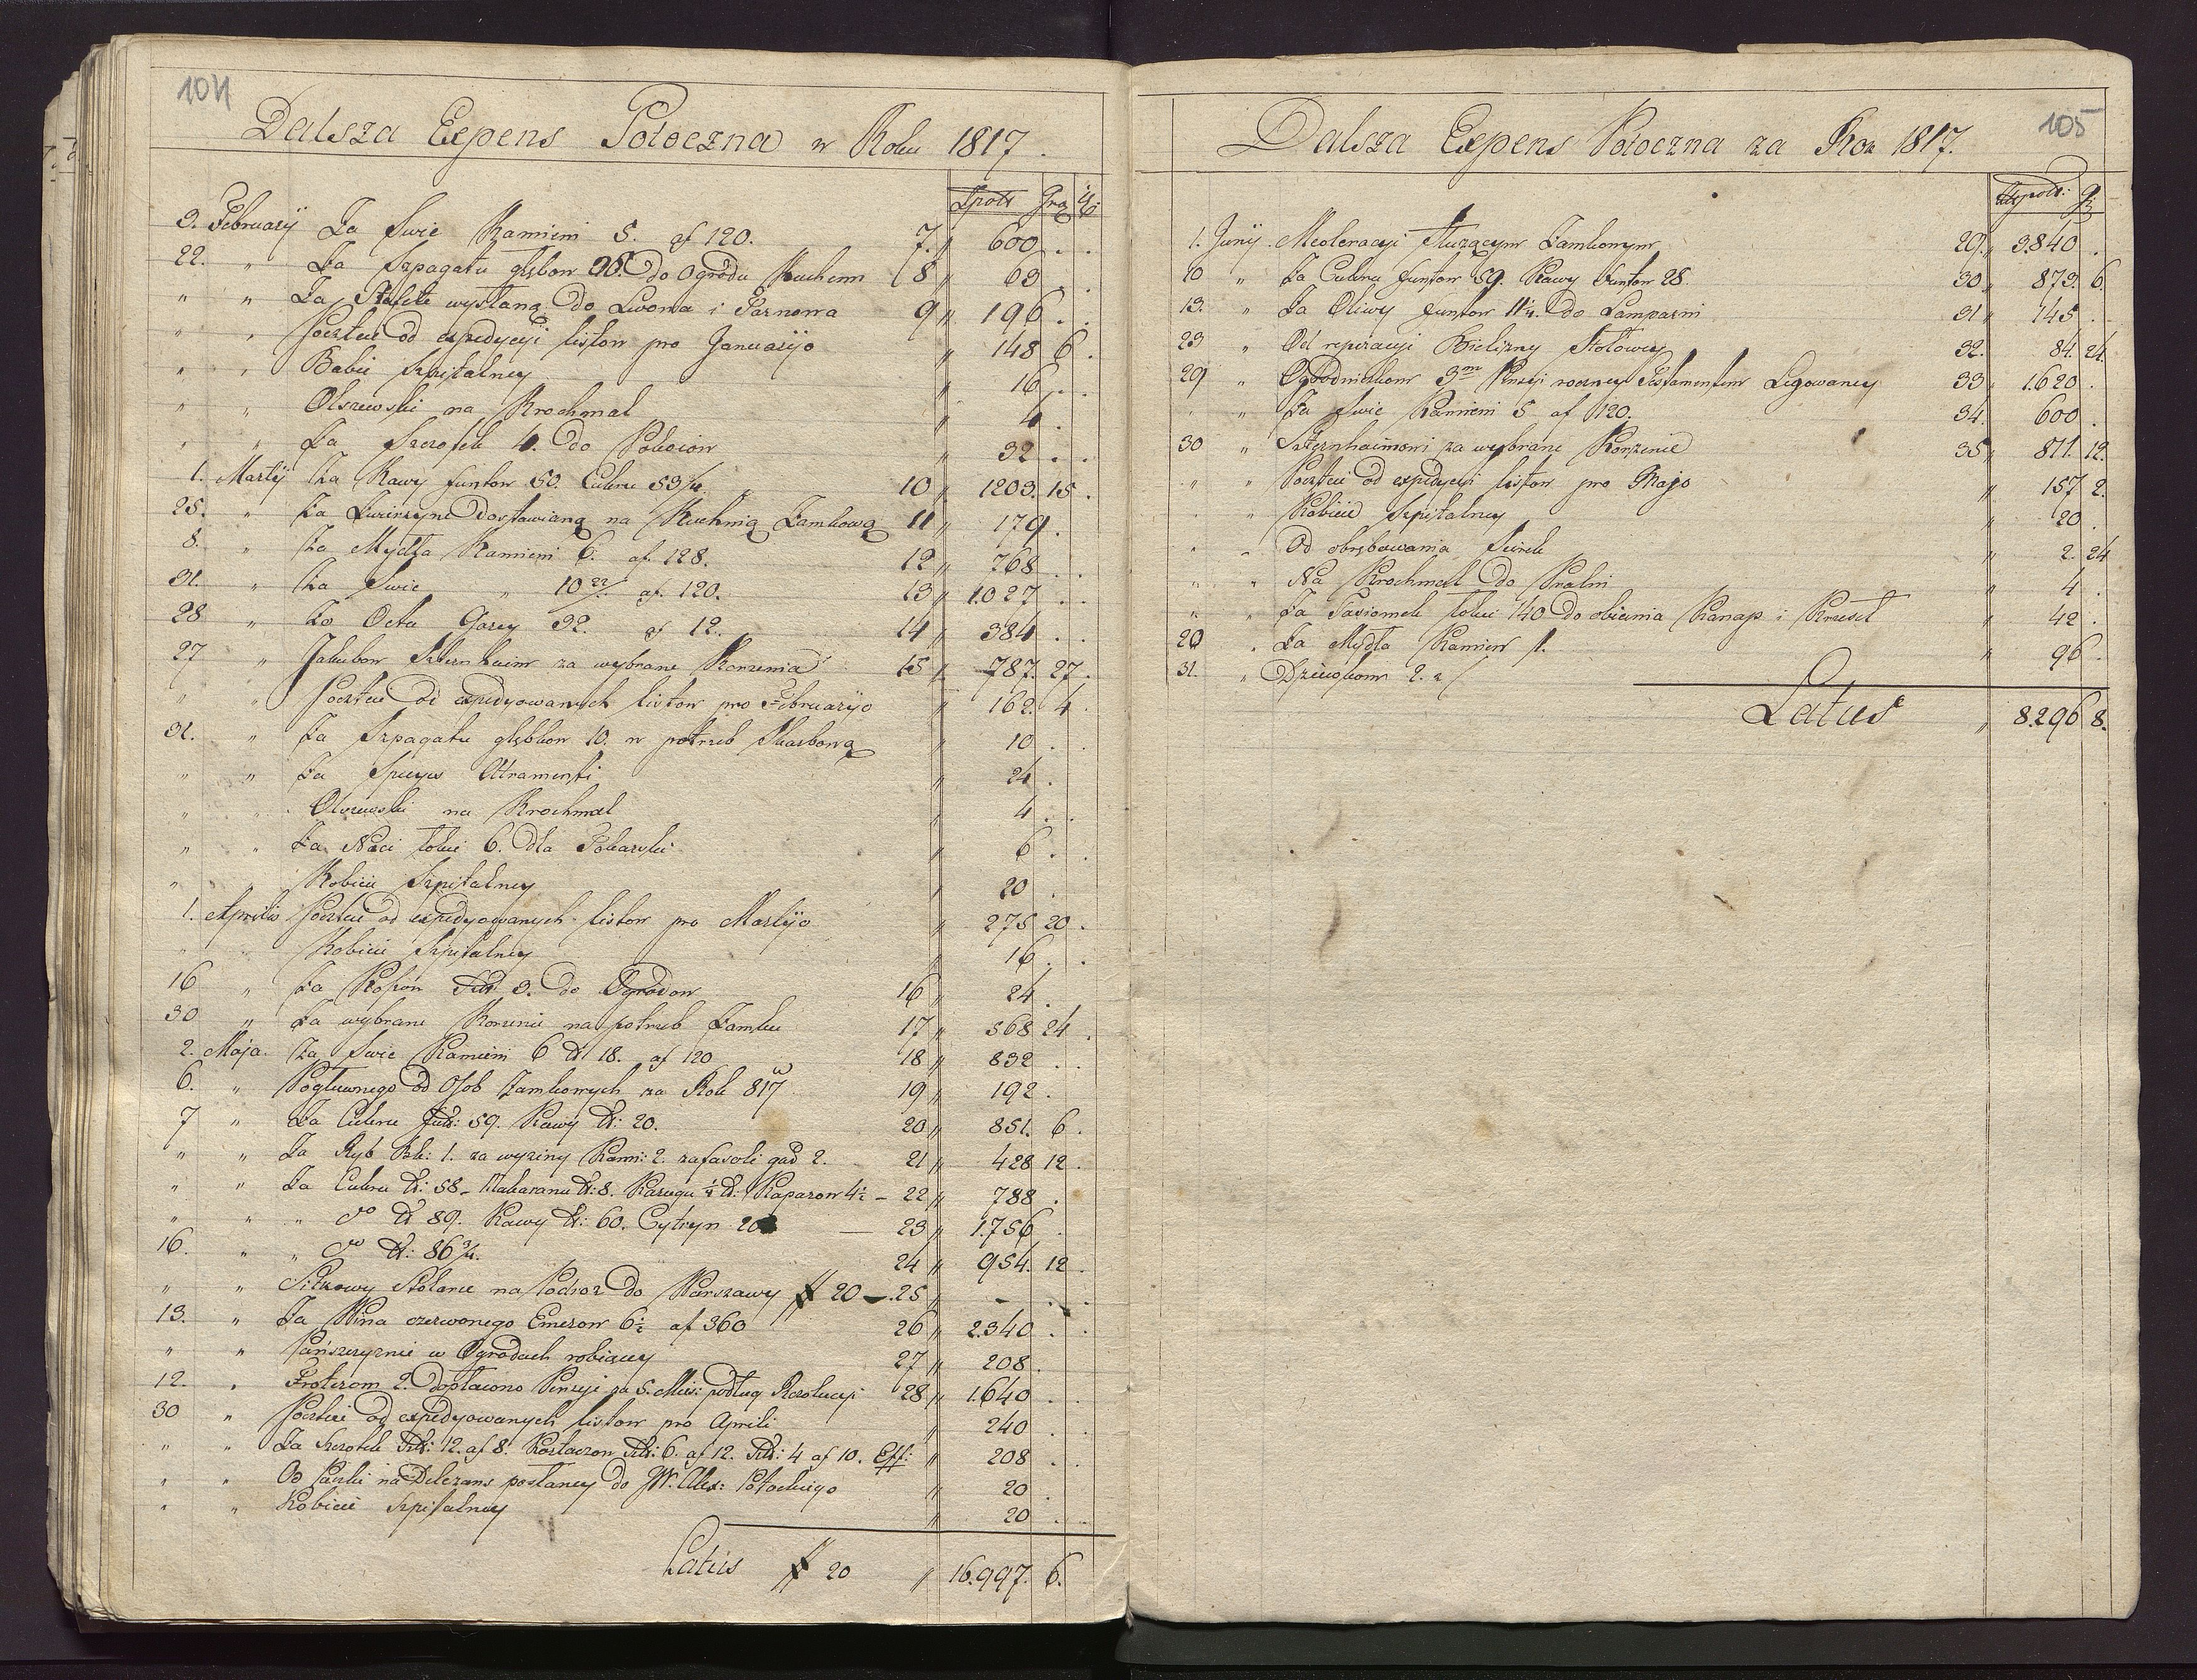 104
Dalsza Expens Potoczna w Roku 1817.
Zpols Gro
3. February Za Swic Kamieni 5. af 120. 7. " 600 . .
22. " Za Szpagatu głębow 35. do Ogrodu Kuchenn 8 " 63 . .
" " Za Stafete wysłaną do Lwowa i Tarnowa 9 " 196 . .
" " Poczcie od expedycyi listow pro Januaryo " 148 6 .
" " Babie Szpitalney " 16 . .
" " Olszewski na Krochmal " 4 .
" " Za Szczotek 4. do Pokoiow " 32 . .
1. Martij Za Kawy funtow 50. Cukru 53/4 10 " 1203. 15 .
25. " Za Zwierzynę dostawianą na Kuchnią Zamkową 11 " 179 .
8. " Za Mydła Kamieni 6. af. 128. 12 " 768 . .
31. " Za Swic " 10 22/ af. 120. 13 " 1.027 . .
28 " Za Octu Garcy 32. af 12. 14 " 384 . .
27 " Jakubow Szternheim za wybrane Korzenia 15 " 787. 27 .
" " Poczcie od expedyowanych listow pro Februaryo " 162. 4 .
31. " Za Szpagatu głębkow 10. w potrzeb Skarbową " 10 . .
" " Za Atramentu " 24 .
" " Olszewski na Krochmal " 4 . .
" " Za Nici łokci 6. dla " 6 . .
" " Kobicie Szpitalney " 20 .
1. Aprilis Poczcie od expedyowanych listow pro Martijo " 275 20 .
" " Kobicie Szpitalney " 16 . .
16 " Za Koszow Sztk 3. do Ogrodow 16 " 24 .
30 " Za wybrane Korzenie na potrzeb Zamku 17 " 568 24 .
2. Maja. Za Swic Kamieni 6 ℔ 18. af 120 18 " 832 . .
6. " Pogłownego od Osob Zamkowych za Rok 817 19 " 192 .
7 " Za Cukru funt: 59. Kawy ℔: 20. 20 " 851. 6 .
" " Za Ryb Bk: 1. za wyziny Kami: 2. za fasoli gad 2. 21 " 428 12 .
" " Za Cukru ℔: 58 - Makaranu ℔: 8. Karugu ½ ℔: Kaparow 4½ - 22 " 788 .
" " " do ℔ 89. Kawy ℔: 60. Cytryn 20 — 23 " 1.756 .
16. " " do ℔: 86¾. 24 " 954. 12 .
" " Stolarce na Podroz do Warszawy # 20 — 25 " - . .
13. " Za Wina czerwonego Emerow 6½ af 360 26 " 2.340 . .
" " Pańszczyznie w Ogrodach robiącey 27 " 208 .
12. " Froterom 2. dopłacono Pensyi za 5. Mies: podług Rezolucyi 28 " 1.640 . .
30 " Poczcie od expedyowanych listow pro Aprili " 240 . .
" " Za Szczotek Sztk: 12. af 8. Sztk: 6. af 12. Sztk: 4 af 10. Eff: " 208 . .
" " Od Paczki na Delizans posłaney do JW. Alex: Potockiego " 20 .
" " Kobicie Szpitalney " 20 . .
Latus # 20 " 16.997. 6.
105
Dalsza Expens Potoczna za Rok 1817.
1. Junij. Meoleracyi Służącym Zamkowym 29. " 3.840 .
10 " Za Cukru funtow 59. Kawy funtow 28. 30 " 873. 6.
13. " Za Oliwy funtow 11¼. do Lamparni 31 " 145 .
23 " Od reperacyi Bielizny Stołowey 32. 84. 24.
29 " Ogrodniczkom 3m Pensyi roczney Testamentem Legowaney 33 " 1.620 .
" " Za Swic Kamieni 5 af 120. 34. 600 .
30 " Szternhaimowi za wybrane Korzenie 35 " 811. 12.
" " Poczcie od expedycyi listow pro Majo " 157 2.
" " Kobicie Szpitalney " 20 .
" " Od obrębowania Scirek " 2. 24
" " Na Krochmal do Pralni " 4 .
" " Za Tasiomek łokci 140 do obicia Kanap i Krzeseł " 42 .
20 " Za Mydła Kamien 1. " 96 .
31. "
Latus " 8.296 8.